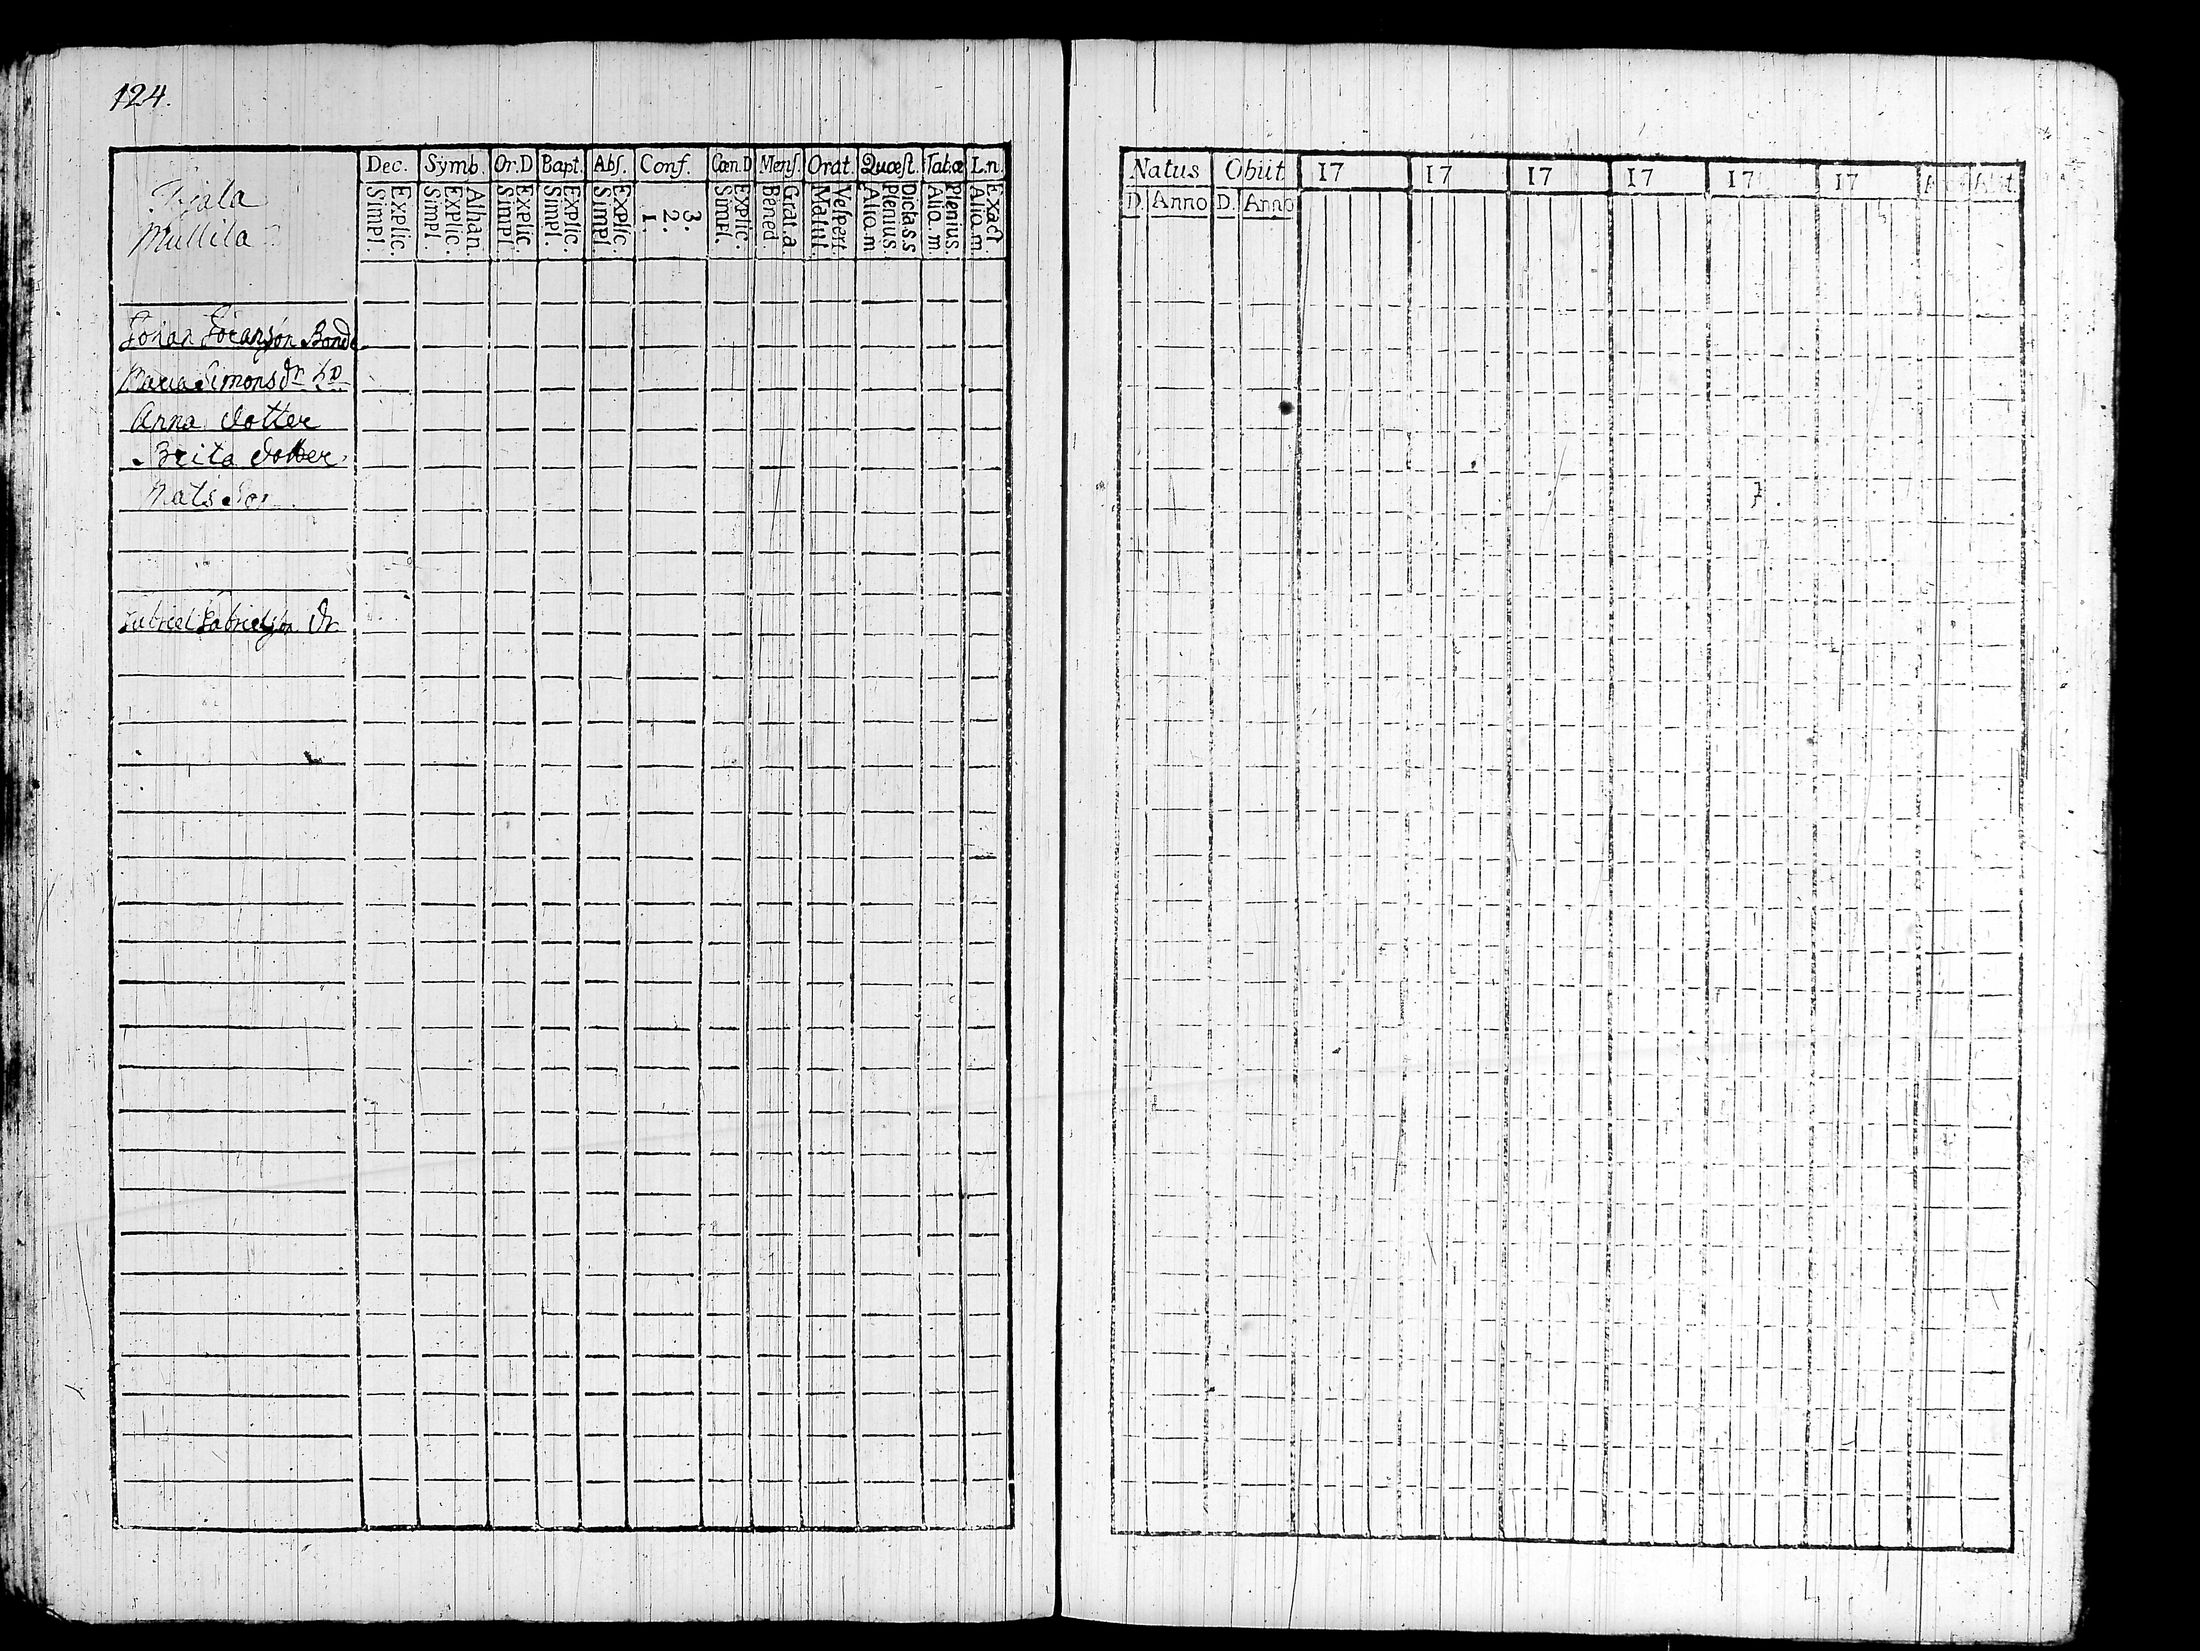 124.
Dec. Symb. Or.D Bapt. Abſ. Conf. Cœn.D Menſ. Orat. Quœſt. Tab.œ L.n.
Simpl. Explic. Simpl. Explic. Athan. Simpl. Explic. Simpl. Explic. Simpl. Explic. 1. 2. 3. Simpl. Explic. Bened. Grat.a. Matut. Veſpert. Alio.m Plenius Dicta.s.s Alio.m. Plenius. Alio.m. Exact.
Mullila
Johan Göranson Bonde
Maria Simonsdr
Anna dotter
Brita dotter
Mats Son
Gabriel Gabrielson dr
Natus Obiit 17 17 17 17 17 17 Abit
D. Anno D. Anno